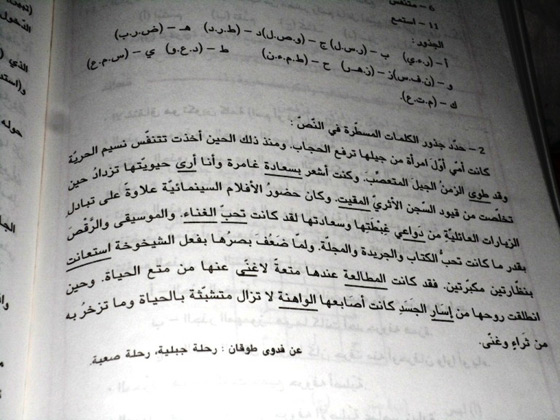 6 – متنفس
11 – استمع
الجذور :
أ – (ر.ه.ي) ب – (ر.س.ل) ج – (و.ص.ل) د – (ط.ر.د) هـ – (ض.ر.ب)
و – (ن.ف.س) ز – (ز.هـ.ر) ح – (ط.م.ء.ن) ط – (د.ع.و) ي – (س.م.ع)
ك – (م.ت.ع).
2 – حدّد جذور الكلمات المسطّرة في النّصّ :
كانت أمّي أوّل امرأة من جيلها ترفع الحجاب. ومنذ ذلك الحين أخذت تتنفّس نسيم الحريّة
وقد طوى الزمنُ الجيلَ المتعصّبَ. وكنت أشعر بسعادة غامرة وأنا أرى حيويّتها تزدادُ حين
تخلّصت من قيود السّجن الأثريّ المقيت. وكان حضورُ الأفلام السينمائيّة علاوةً على تبادل
الزيارات العائليّة من دَواعي غِبطتِها وسعادتها لقد كانت تحبّ الغناء. والموسيقى والرّقصَ
بقدر ما كانت تحبُّ الكتاب والجريدة والمجلّة. ولمّا ضَعُفَ بصرُها بفعل الشيخوخة استعانت
بنظّارتين مكبّرتين. فقد كانت المطالعة عندها متعةً لاغنًى عنها من متع الحياة. وحين
انطلقت روحها من إسَار الجَسَدِ كانت أصابعها الواهنة لا تزال متشبّثة بالحياة وما تزخرُ به
من ثَراءٍ وغنًى.
عن فدوى طوقان : رحلة جبلية، رحلة صعبة.